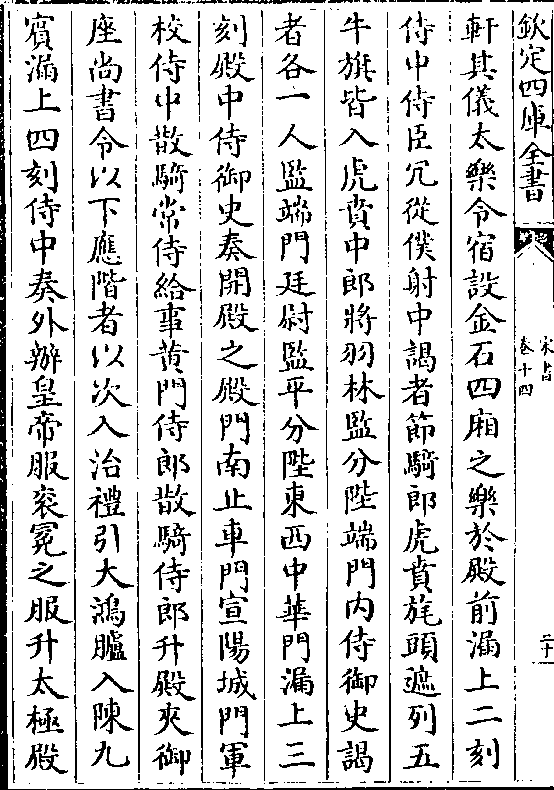 欽定四庫全書
宋書
卷十四
二十
軒其儀太樂令宿設金石四廂之樂於殿前漏上二刻
侍中侍臣冗從僕射中謁者節騎郎虎賁旄頭遮列五
牛旗皆入虎賁中郎將羽林監分陛端門内侍御史謁
者各一人監端門廷尉監平分陛東西中華門漏上三
刻殿中侍御史奏開殿之殿門南止車門宣陽城門軍
校侍中散騎常侍給事黄門侍郎散騎侍郎升殿夾御
座尚書令以下應階者以次入治禮引大鴻臚入陳九
賓漏上四刻侍中奏外辦皇帝服衮冕之服升太極殿